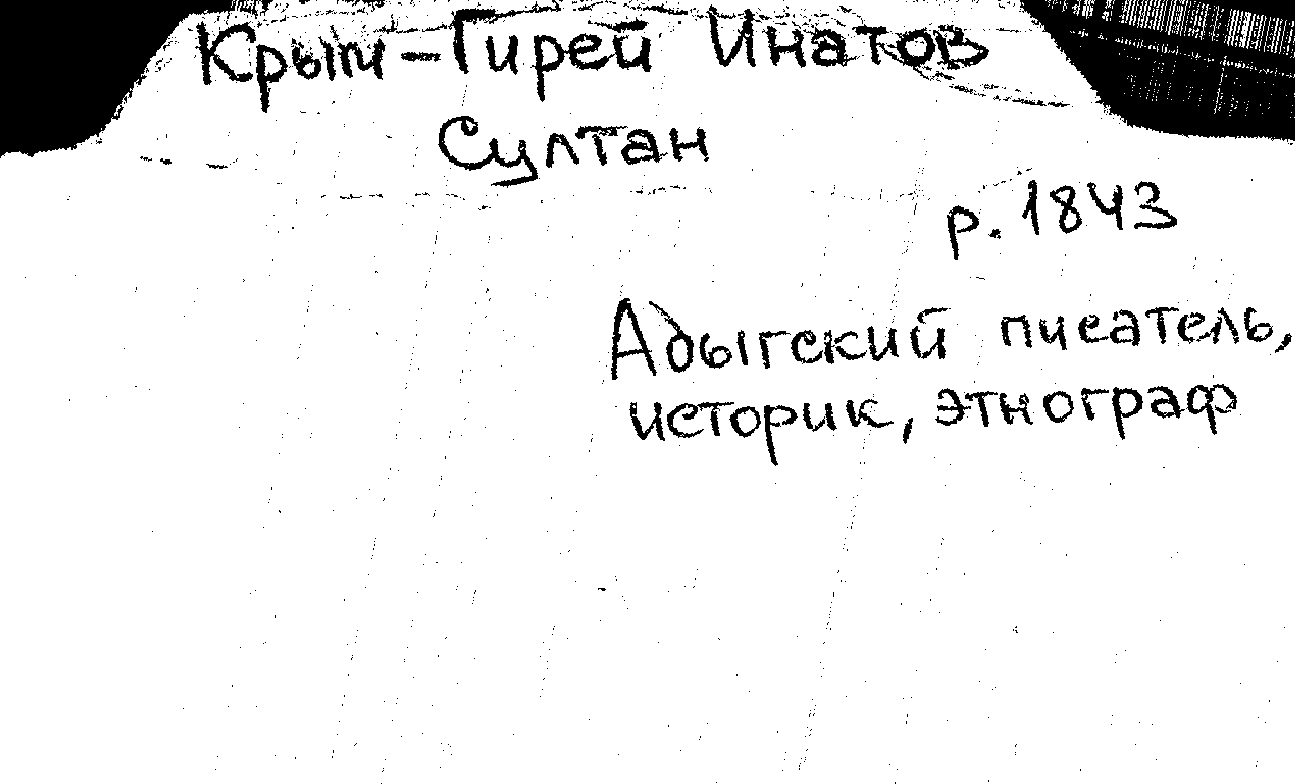 Крым-Гирей Инатов
Султан
р. 1843
Адыгский писатель,
историк, этнограф